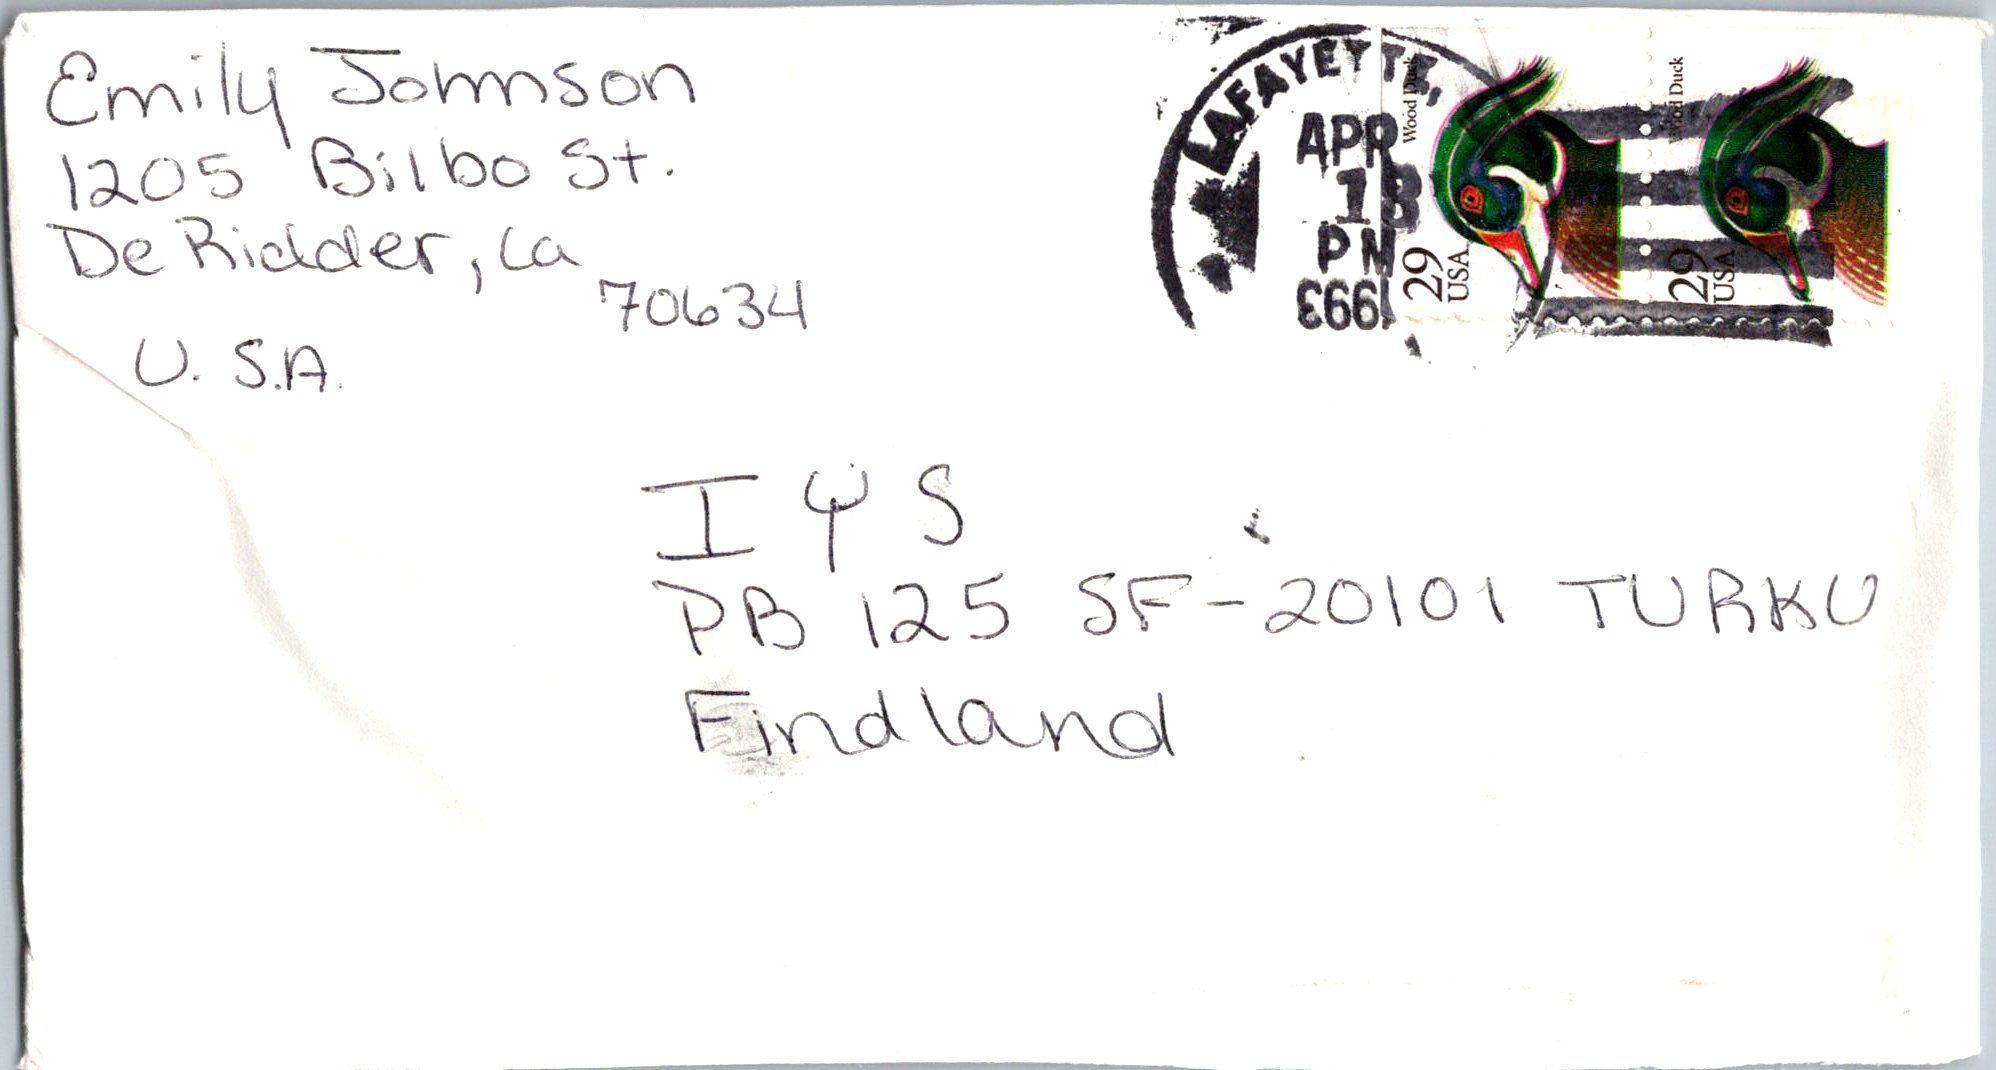 Emily Johnson
1205 Bilbo St.
De Ridder, La
70634
U. S.A.
LAFAYETTE,
APR
18
PM
1993
Wood Duck
29
USA
Wood Duck
29
USA
I Y S
PB 125 SF-20101 TURKU
Findland